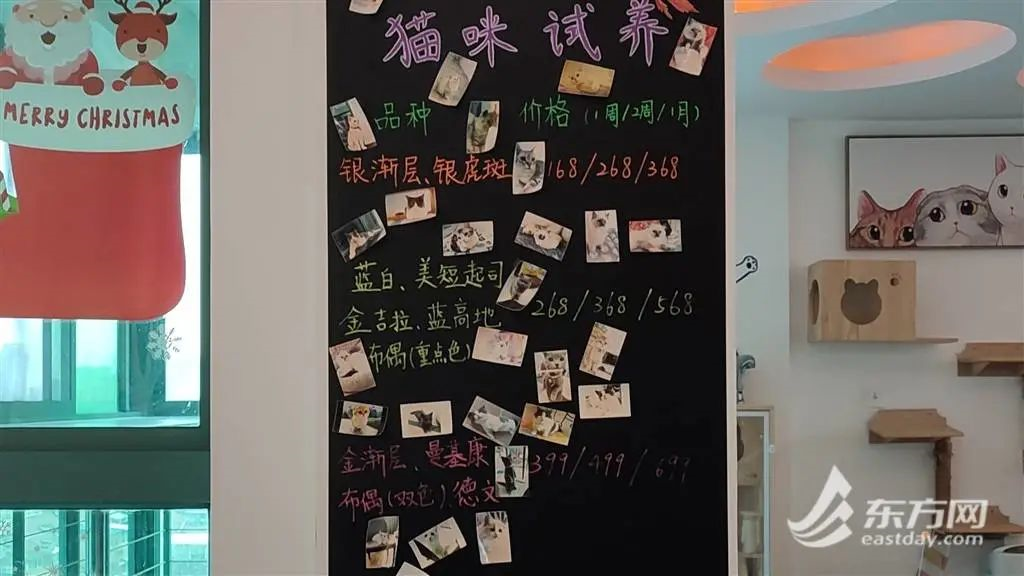 MERRY CHRISTMAS
猫咪试养
品种 价格(1周/2周/1月)
银渐层、银虎斑 168/268/368
蓝白、美短起司
金吉拉、蓝高地 268/368/568
布偶(重点色)
金渐层、曼基康 399/499/699
布偶(双色)、德文
东方网
eastday.com